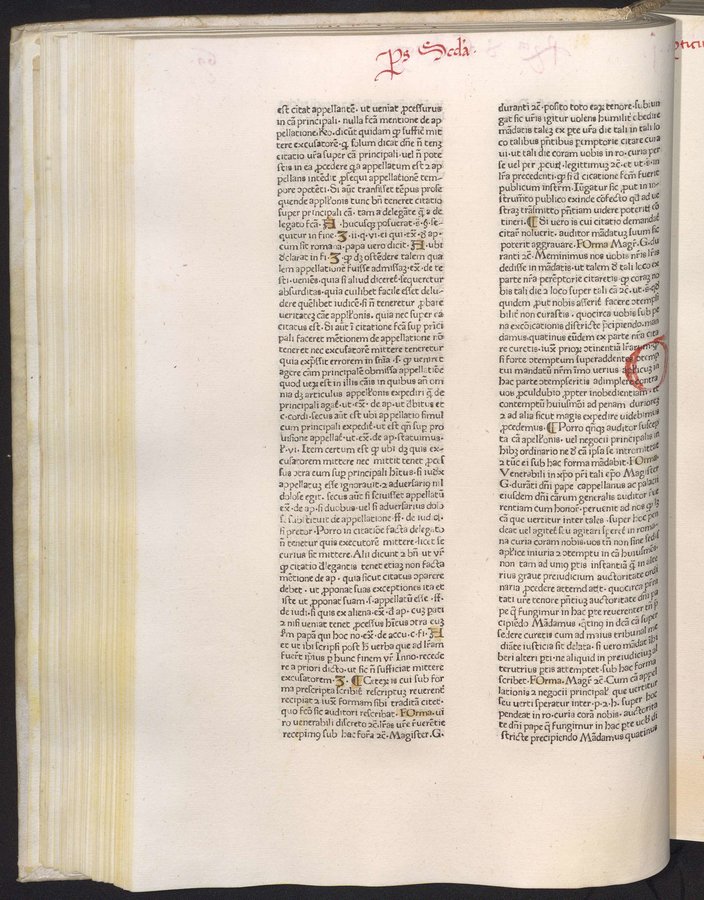 Ps Scda
est citat appellantē. ut veniat pcessurus
in cā principali. nulla fcā mentione de ap
pellatione. Rō. dicūt quidam φ suffic mit
tere excusatorē. q̄ solum dicat dn̄e n̄ tenȝ
citatio ur̄a super cā principali. vel n̄ pote
stis in ea pcedere q̄a appellatum est 2 ap
pellans intēdit psequi appellationē tem
pore opteti. Si aūt transisset tēpus prose
quende applōnis tunc bn̄ teneret citatio
super principali cā. tam a delegate q̄ a de
legato fcā. A. hucusq posuerat. s. §. se-
quitur in fine. Ȝ. ii. q. vi. ei qui. ex. d ap.
cum sit romana. papa vero dicit. A. ubi
declarat in fi. Ȝ. φ dȝ ostēdere talem qua
lem appellationē fuisse admissaȝ. ex. de te
sti. veniēs. quia si aliud diceret sequeretur
absurditas. quia cuilibet facile esset delu-
dere quēlibet iudicē. si n̄ teneretur pbare
veritateȝ cāe applōnis. quia nec super ea
citatus est. Si aūt ī citatione fcā sup prīci
pali faceret mētionem de appellatione nō
teneret nec excusatorē mittere teneretur
quia expssit errorem in snīa. s. φ venirēt
agere cām principalē obmissa appellatiōe
quod ueȝ est in illis cāis in quibus an̄ omī
nia dȝ articulus appellōnis expediri q̄ de
principali agat. ut. ex. de ap. ut dbitus et
c. cordi. secus aūt est ubi appellatio simul
cum principali expedit. ut est qn̄ sup pro
uisione appellat. ut. ex. de ap. statuimus.
l. vi. Item certum est φ ubi dȝ quis ex-
cusatorem mittere nec mittit tenet pces
sus otra eum sup principali hitus. si iudex
appellatuȝ esse ignorauit. 2 aduersariꝰ nil
dolose egit. secus aūt si sciuisset appellatū
ex. de ap. si duobus. vel si aduersarius dolo
se subtituit de appellatione. ff. de iudi.
si pretor. Porro in citatiōe facta delegato
n̄ tenetur quis excusatorē mittere. licet se
curius sit mittere. Alii dicunt 2 bn̄ ut vr̄
φ citatio dlegantis tenet etiaȝ non facta
mētione de ap. quia sicut citatus oparere
debet. ut pponat suas exceptiones ita et
iste ut pponat suam. s. appellatū esse. ff.
de iudi. si quis ex aliena. ex. d ap. cuȝ pati
2 nisi veniat tenet pcessus hitus otra cuȝ
s̄m papā qui hoc no. ex. de accu. c. fi. Ȝ. A
et ut ibi scripsi post h̄ verba que ad lr̄am
fuert ipius p hunc finem vr̄ Inno. recede
re a priori dicto. ut sic n̄ sufficiat mittere
excusatorem. Ȝ. ¶ Ceteȝ is cui sub for
ma prescripta scribit rescriptuȝ reuerenē
recipiat 2 iuxᷓ formam sibi traditā citet.
quo fcō sic auditori rescribat. FOrma. ui
ro venerabili discreto 2c. lr̄as ur̄e r̄uerētie
recepimꝰ sub hac forā 2c. Magister. G.
duranti 2c. posito toto eaȝ tenore. subiun
gat sic ur̄is igitur uolens humilit obedire
mādatis taleȝ ex pte ur̄a die tali in tali lo
co talibus pn̄tibus pemptorie citare cura
ui. ut tali die coram uobis in ro. curia per
se vel per pcut legittimuȝ 2c. et ut. s. in
lr̄a precedenti. φ si d citatione fcēm fuerit
publicum instrm̄. Iūgatur sic put in in-
strumēto publico exinde cōfecto qd ad ue
straȝ trāsmitto pn̄tiam uidere poteritis cō
tineri. ¶ Si uero is cui citatio demandat
citar̄ noluerit. auditor mādatuȝ suum sic
poterit aggrauare. FOrma Magr̄. G. du
ranti 2c. Meminimus nos uobis nr̄is lr̄is
dedisse in mādatis. ut talem d tali loco ex
parte nr̄a peremptorie citaretis φ coraȝ no
bis tali die 2 loco super tali cā 2c. ut. s. qd
quidem put nobis asserit facere otempsi
bilit non curastis. quocirca uobis sub pe
na excōicationis districte pcipiendo. man
damus. quatinus eūdem ex parte nr̄a cita
re curetis. iuxᷓ prioȝ otinentiā lr̄arum
si forte otemptum superaddentes otemp
tui mandatū nr̄m imo uerius
hac parte otempseritis adimplere contra
uos pculdubio ppter inobedientiam. et
contemptū huiusmōi ad penam durioreȝ
2 ad alia sicut magis expedire uidebimus
pcedemus. ¶ Porro qn̄qȝ auditor suscep
ta cā apellōnis. vel negocii principalis in
hibȝ ordinario ne d eā ipsa se intromittat
2 tūc ei sub hac forma mādabit. FOrma.
Venerabili in xpō pr̄i tali ep̄o Magister
G. durāti dn̄i pape cappellanus ac palacii
eiusdem dn̄i cārum generalis auditor r̄ue
rentiam cum honor. peruenit ad nos φ in
cā que vertitur inter tales. super hoc pen
deat uel agitet seu agitari speret in roma
na curia coram nobis. uos tn̄ non sine sedis
aplice iniuria 2 otemptu in eā huiusmōi.
non tam ad unīꝰ ptis instantiā q̄ in alte
rius graue preiudicium auctoritate ordi
naria pcedere attemdatis. quocirca pr̄ni
tati ur̄e tenore pn̄tiuȝ auctoritate dn̄i pa
pe q̄ fungimur in hac pte reuerenter
cipiēdo Mādamus qting in dcā cā super
sedere curetis cum ad maius tribunal me
diāte iusticia sit delata. si uero mādat ibi
beri alteri pti. ne aliquid in preiudiciuȝ al
terutrius ptis attemptet. sub hac forma
scribet. FOrma. Magr̄ 2c. Cum cā appel
lationis 2 negocii principal que vertitur
seu verti speratur inter. p. 2. h. super hoc
pendeat in ro. curia corā nobis. auctorita
te dn̄i pape q̄ fungimur in hac pte uobis di
stricte precipiendo Mādamus quatinus